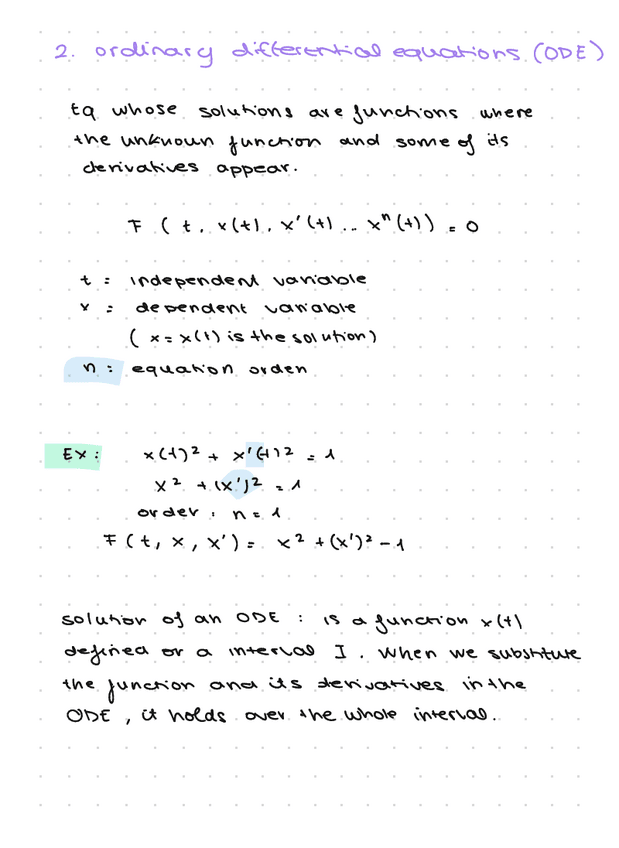 2. ordinary differential equations (ODE)
Eq whose solutions are functions where
the unknown function and some of its
derivatives appear.
F ( t, x(t), x'(t) ... xⁿ(t)) = 0
t = independent variable
x = dependent variable
( x = x(t) is the solution)
n = equation orden
EX: x(t)² + x'(t)² = 1
x² + (x')² = 1
order : n = 1
F ( t, x, x') = x² + (x')² - 1
solution of an ODE : is a function x(t)
defined or a interval I. When we substitute
the function and its derivatives in the
ODE, it holds over the whole interval.